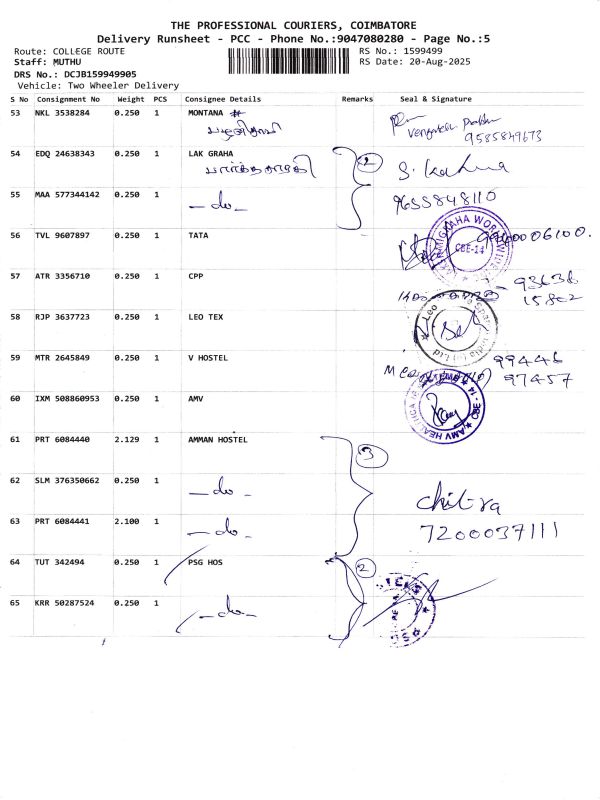 THE PROFESSIONAL COURIERS, COIMBATORE
Delivery Runsheet - PCC - Phone No.:9047080280 - Page No.:5
Route: COLLEGE ROUTE
RS No.: 1599499
Staff: MUTHU
RS Date: 20-Aug-2025
DRS No.: DCJB159949905
Vehicle: Two Wheeler Delivery
S No Consignment No Weight PCS Consignee Details Remarks Seal & Signature
53 NKL 3538284 0.250 1 MONTANA #
Venkatesh Prabhu
9585849673
54 EDQ 24638343 0.250 1 LAK GRAHA
2
55 MAA 577344142 0.250 1 -do-
9655848110
56 TVL 9607897 0.250 1 TATA
CBE-14
57 ATR 3356710 0.250 1 CPP
93636
15802
58 RJP 3637723 0.250 1 LEO TEX
59 MTR 2645849 0.250 1 V HOSTEL
99446
97457
60 IXM 508860953 0.250 1 AMV
61 PRT 6084440 2.129 1 AMMAN HOSTEL
3
62 SLM 376350662 0.250 1 -do-
Chitra
63 PRT 6084441 2.100 1 -do-
7200037111
64 TUT 342494 0.250 1 PSG HOS
2
65 KRR 50287524 0.250 1 -do-